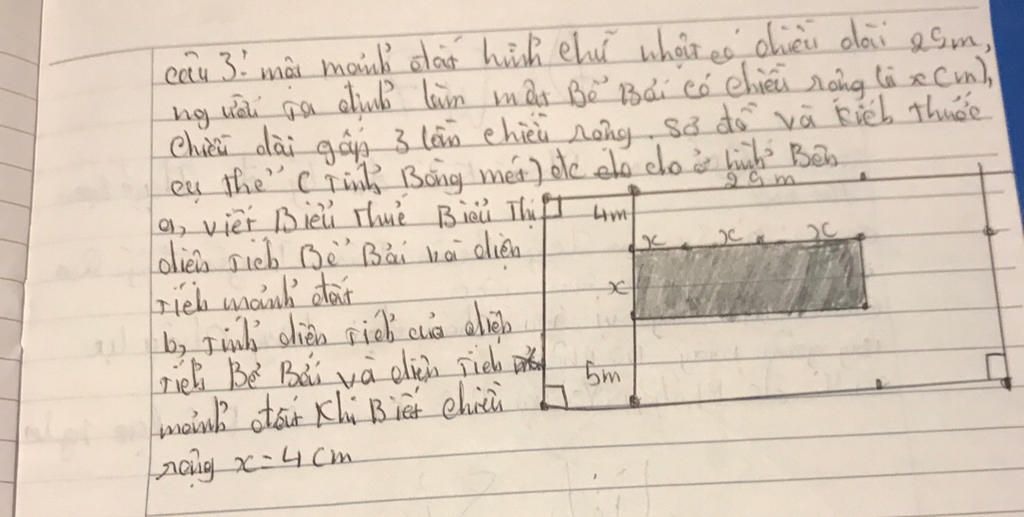 câu 3: một mảnh đất hình chữ nhật có chiều dài 25m,
người ta định làm một Bể Bơi có chiều rộng là x (m),
chiều dài gấp 3 lần chiều rộng. Sơ đồ và kích thước
cụ thể (Tính Bằng mét) đc cho ở hình Bên
25m
a, viết Biểu Thức Biểu Thị
4m
diện tích Bể Bơi và diện
x x x
tích mảnh đất
x
b, Tính diện tích của diện
tích Bể Bơi và diện tích
5m
mảnh đất Khi Biết chiều
rộng x = 4 cm